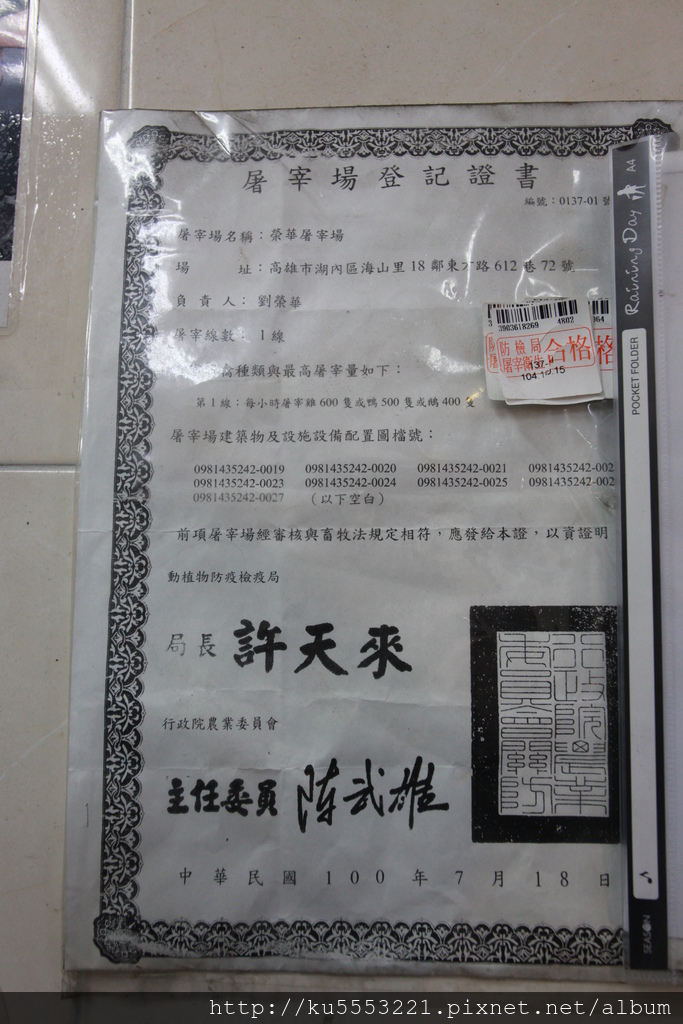 屠宰場登記證書
編號：0137-01 號
屠宰場名稱：榮華屠宰場
場 址：高雄市湖內區海山里 18 鄰東方路 612 巷 72 號
負 責 人： 劉榮華
屠宰線數： 1 線
禽種類與最高屠宰量如下：
第 1 線：每小時屠宰雞 600 隻或鴨 500 隻或鵝 400 隻
屠宰場建築物及設施設備配置圖檔號：
0981435242-0019 0981435242-0020 0981435242-0021 0981435242-002
0981435242-0023 0981435242-0024 0981435242-0025 0981435242-002
0981435242-0027 （以下空白）
前項屠宰場經審核與畜牧法規定相符，應發給本證，以資證明
動植物防疫檢疫局
局長 許天來
行政院農業委員會
主任委員 陳武雄
中 華 民 國 100 年 7 月 18 日
行政院農業
委員會關防
3903618269 4802
964
防檢局
屠宰衛生
合格
格
137
104.10.15
A4
Raining Day
POCKET FOLDER
SEASON
http://ku5553221.pixnet.net/album